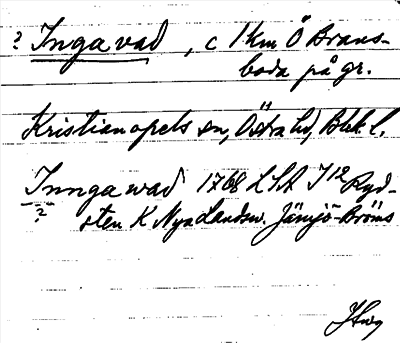 ? Inga vad, c 1 km Ö Brans-
boda på gr.
Kristianopels sn, Östra hd, Blek. l.
Innga wad 1768 LSA J12 Ryd-
? sten K Nya Landsv. Jämjö-Bröms